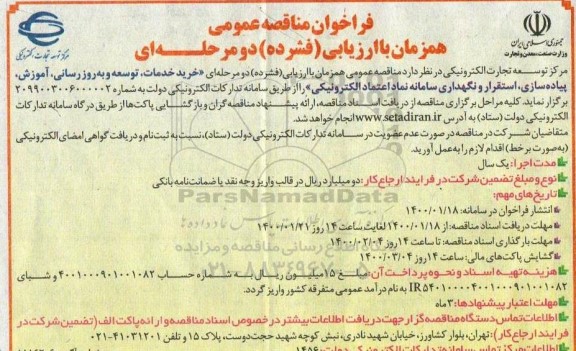 فراخوان مناقصه عمومی
همزمان با ارزیابی (فشرده) دو مرحله‌ای
جمهوری اسلامی ایران
وزارت صنعت، معدن و تجارت
مرکز توسعه تجارت الکترونیکی
مرکز توسعه تجارت الکترونیکی در نظر دارد مناقصه عمومی همزمان با ارزیابی (فشرده) دو مرحله‌ای «خرید خدمات، توسعه و به‌روز رسانی، آموزش،
پیاده‌سازی، استقرار و نگهداری سامانه نماد اعتماد الکترونیکی» را از طریق سامانه تدارکات الکترونیکی دولت به شماره ۲۰۹۹۰۰۳۰۰۶۰۰۰۰۰۲
برگزار نماید. کلیه مراحل برگزاری مناقصه از دریافت اسناد مناقصه، ارائه پیشنهاد مناقصه‌گران و بازگشایی پاکت‌ها از طریق درگاه سامانه تدارکات
الکترونیکی دولت (ستاد) به آدرس www.setadiran.ir انجام خواهد شد.
متقاضیان شرکت در مناقصه در صورت عدم عضویت در سامانه تدارکات الکترونیکی دولت (ستاد)، نسبت به ثبت‌نام و دریافت گواهی امضای الکترونیکی
(به‌صورت برخط) اقدام لازم را به‌عمل آورید.
مدت اجرا: یک سال
نوع و مبلغ تضمین شرکت در فرایند ارجاع کار: دو میلیارد ریال در قالب واریز وجه نقد یا ضمانت‌نامه بانکی
تاریخ‌های مهم:
انتشار فراخوان در سامانه: ۱۴۰۰/۰۱/۱۸
مهلت دریافت اسناد مناقصه: از ۱۴۰۰/۰۱/۱۸ لغایت ساعت ۱۴ روز ۱۴۰۰/۰۱/۲۱
مهلت بارگذاری اسناد مناقصه: تا ساعت ۱۴ روز ۱۴۰۰/۰۲/۰۴
گشایش پاکت‌های مالی: ساعت ۱۴ روز ۱۴۰۰/۰۳/۰۴
هزینه تهیه اسناد و نحوه پرداخت آن: مبلغ ۱۵ میلیون ریال به شماره حساب ۴۰۰۱۰۰۰۹۰۱۰۰۱۰۸۲ و شبای
به نام درآمد عمومی متفرقه کشور واریز گردد.
مهلت اعتبار پیشنهادها: ۳ ماه
اطلاعات تماس دستگاه مناقصه‌گزار جهت دریافت اطلاعات بیشتر در خصوص اسناد مناقصه و ارائه پاکت الف (تضمین شرکت در
فرایند ارجاع کار): تهران، بلوار کشاورز، خیابان شهید نادری، نبش کوچه شهید حجت‌دوست، پلاک ۱۵ و تلفن ۴۱۰۳۱۲۰۱-۰۲۱
اطلاعات مرکز تماس سامانه تدارکات الکترونیکی دولت: ۱۴۵۶
ParsNamadData